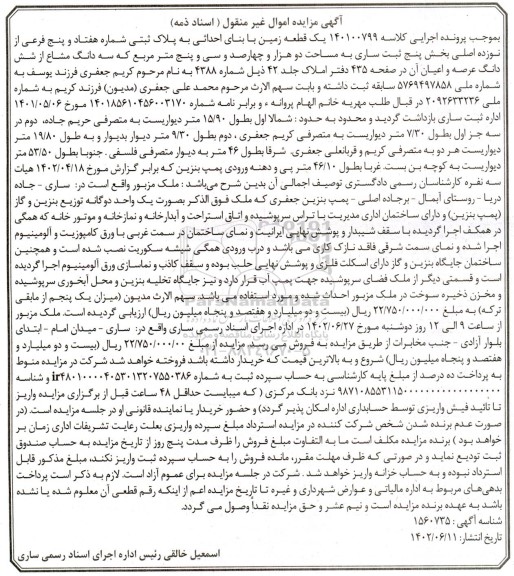 آگهی مزایده اموال غیر منقول ( اسناد ذمه)
بموجب پرونده اجرایی کلاسه ۱۴۰۱۰۰۷۹۹ یک قطعه زمین با بنای احداثی به پلاک ثبتی شماره هفتاد و پنج فرعی از
نوزده اصلی بخش پنج ثبت ساری به مساحت دو هزار و چهارصد و سی و پنج متر مربع که سه دانگ مشاع از شش
دانگ عرصه و اعیان آن در صفحه ۴۳۵ دفتر املاک جلد ۴۲ ذیل شماره ۴۳۸۸ به نام مرحوم کریم جعفری فرزند یوسف به
شماره ملی ۵۷۶۹۴۹۷۸۵۸ سابقه ثبت داشته و بابت سهم الارث مرحوم محمد علی جعفری (مدیون) فرزند کریم به شماره
ملی ۲۰۹۲۶۳۳۲۳۶ در قبال طلب مهریه خانم الهام پروانه ، و برابر نامه شماره ۱۴۰۱۸۵۶۱۰۴۵۶۰۰۳۱۷۰ مورخ ۱۴۰۱/۰۵/۰۶
اداره ثبت ساری بازداشت گردید و محدود به حدود : شمالا اول بطول ۱۵/۹۰ متر دیواریست به متصرفی حریم جاده، دوم در
سه جزء اول بطول ۷/۳۰ متر دیواریست به متصرفی کریم جعفری ، دوم بطول ۹/۳۰ متر دیوار بدیوار و به طول ۱۹/۸۰ متر
دیواریست هر دو به متصرفی کریم و قربانعلی جعفری. شرقا بطول ۴۶ متر به دیوار متصرفی فلسفی . جنوبا بطول ۵۳/۵۰ متر
دیواریست به کوچه بن بست. غربا بطول ۴۶/۱۰ متر پی و دهنه ورودی پمپ بنزین که برابر گزارش مورخ ۱۴۰۲/۰۴/۱۸ هیات
سه نفره کارشناسان رسمی دادگستری توصیف اجمالی آن بدین شرح می‌باشد : ملک مزبور واقع است در: ساری - جاده
دریا - روستای آبمال - برجاده اصلی - پمپ بنزین جعفری که ملک فوق الذکر بصورت یک واحد دوگانه توزیع بنزین و گاز
(پمپ بنزین) و دارای ساختمان اداری مدیریت با تراس سرپوشیده و اتاق استراحت و آبدارخانه و نمازخانه و موتور خانه که همگی
در همکف اجرا گردیده با سقف شیبدار و پوشش نهایی ایرانیت و نمای ساختمان در سمت غربی با ورق کامپوزیت و آلومینیوم
اجرا شده و نمای سمت شرقی فاقد نازک کاری می باشد و درب ورودی همکی شیشه سکوریت نصب شده است و همچنین
ساختمان جایگاه بنزین و گاز دارای اسکلت فلزی و پوشش نهایی حلب بوده و سقف کاذب و نماسازی ورق آلومینیوم اجرا گردیده
است و قسمتی دیگر از ملک فضای سرپوشیده جهت پمپ آب قرار دارد و نیز جایگاه تخلیه بنزین و محل آبخوری سرپوشیده
و مخزن ذخیره سوخت در ملک مزبور احداث شده و مورد استفاده می باشد سهم الارث مدیون (میزان یک پنجم از مابقی
ترکه) به مبلغ ۲۲/۷۵۰/۰۰۰/۰۰۰ ریال (بیست و دو میلیارد و هفتصد و پنجاه میلیون ریال) ارزیابی گردیده است. ملک مزبور
از ساعت ۹ الی ۱۲ روز دوشنبه مورخ ۱۴۰۲/۰۶/۲۷ در اداره اجرای اسناد رسمی ساری واقع در: ساری - میدان امام - ابتدای
بلوار آزادی - جنب مخابرات از طریق مزایده به فروش می رسد. مزایده از مبلغ ۲۲/۷۵۰/۰۰۰/۰۰۰ ریال (بیست و دو میلیارد و
هفتصد و پنجاه میلیون ریال) شروع و به بالاترین قیمت که خریدار داشته باشد فروخته خواهد شد شرکت در مزایده منوط
به پرداخت ده درصد از مبلغ پایه کارشناسی به حساب سپرده ثبت به شماره ir۴۸۰۱۰۰۰۰۴۰۵۳۰۱۳۲۰۷۵۵۰۳۸۶ و شناسه
نزد بانک مرکزی ( که میبایست حداقل ۴۸ ساعت قبل از برگزاری مزایده واریز
تا تائید فیش واریزی توسط حسابداری اداره امکان پذیر گردد) و حضور خریدار یا نماینده قانونی او در جلسه مزایده است. (در
صورت عدم برنده شدن شخص شرکت کننده در مزایده استرداد مبلغ سپرده واریزی بعلت رعایت تشریفات اداری زمان بر
خواهد بود ) برنده مزایده مکلف است ما به التفاوت مبلغ فروش را ظرف مدت پنج روز از تاریخ مزایده به حساب صندوق
ثبت تودیع نماید و در صورتی که ظرف مهلت مقرر، مانده فروش را به حساب سپرده ثبت واریز نکند، مبلغ مذکور قابل
استرداد نبوده و به حساب خزانه واریز خواهد شد . شرکت در جلسه مزایده برای عموم آزاد است. لازم به ذکر است پرداخت
بدهی‌های مربوط به اداره مالیاتی و عوارض شهرداری و غیره تا تاریخ مزایده اعم از اینکه رقم قطعی آن معلوم شده یا نشده
باشد به عهده برنده مزایده است و نیم عشر و حق مزایده نقداً وصول می گردد.
شناسه آگهی: ۱۵۶۰۷۳۵
تاریخ انتشار: ۱۴۰۲/۰۶/۱۱
اسمعیل خالقی رئیس اداره اجرای اسناد رسمی ساری